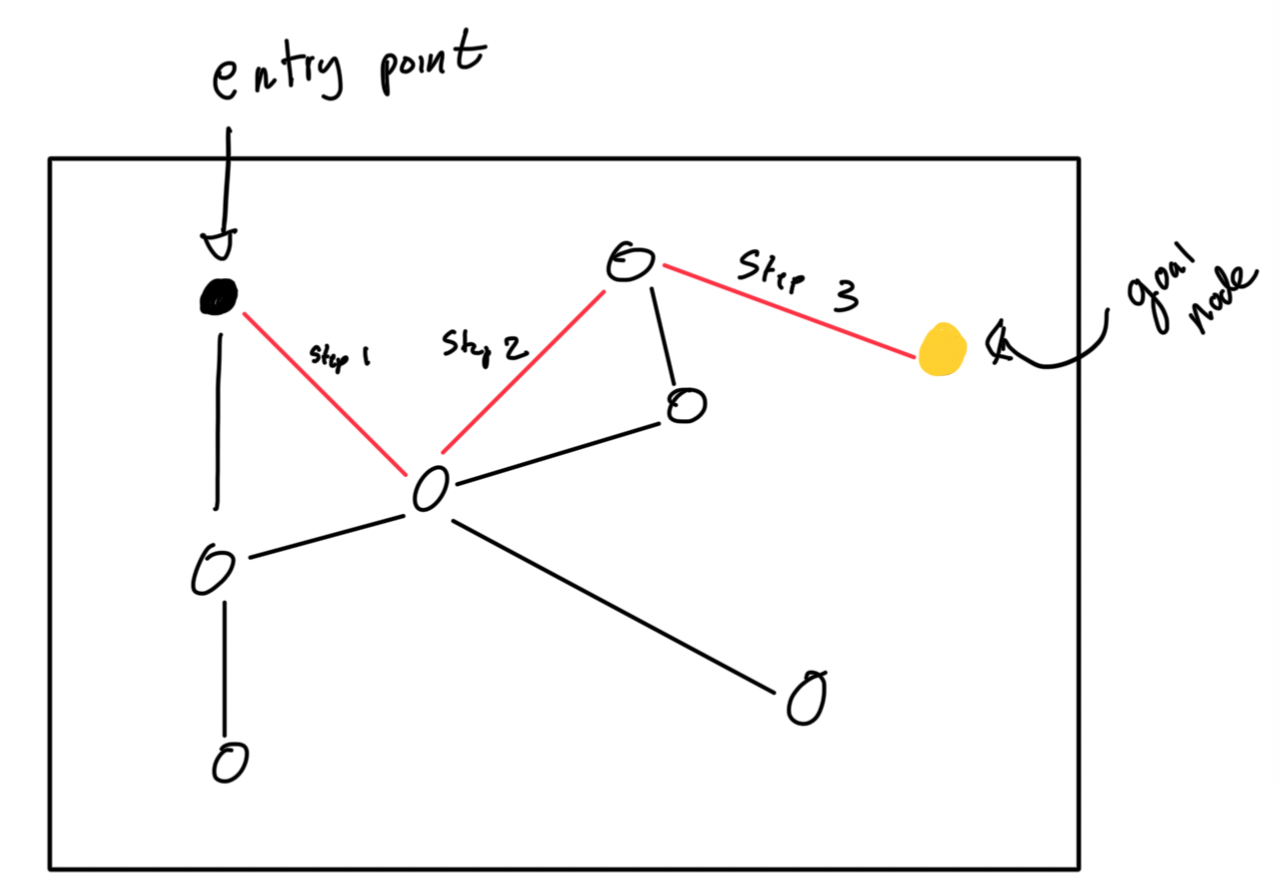 entry point
Step 1
Step 2
Step 3
goal
node